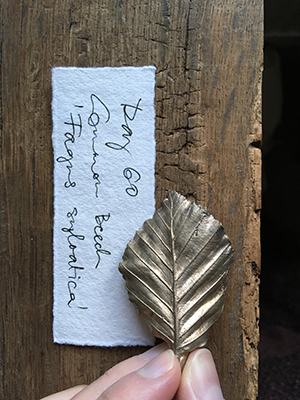 Day 60
Common Beech
'Fagus sylvatica'